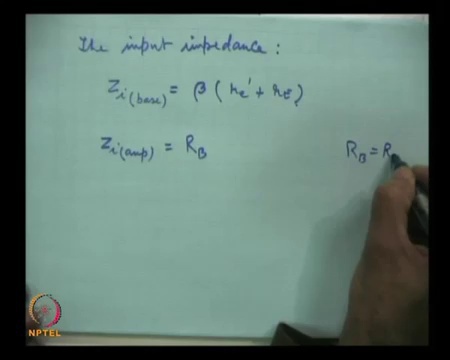 The input impedance :
Zi(base) = β ( re' + rE )
Zi(amp) = RB
RB = R
NPTEL